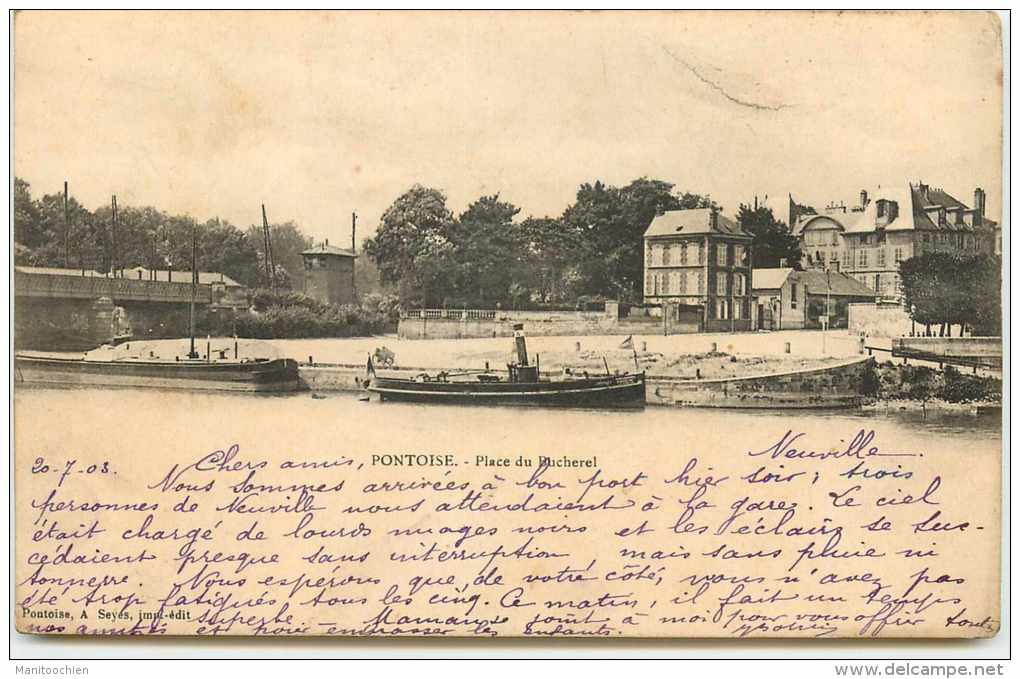 PONTOISE. - Place du Bucherel
Neuville
20-7-03. Chers amis,
Nous sommes arrivées à bon port hier soir; trois
personnes de Neuville nous attendaient à la gare. Le ciel
était chargé de lourds nuages noirs et les éclairs se suc-
cédaient presque sans interruption, mais sans pluie ni
tonnerre. Nous espérons que, de votre côté, vous n'avez pas
été trop fatigués, tous les cinq. Ce matin, il fait un temps
superbe. Maman se joint à moi pour vous offrir toutes
nos amitiés et pour embrasser les enfants.
Pontoise, A Seyès, impr-édit
Manitoochien
www.delcampe.net